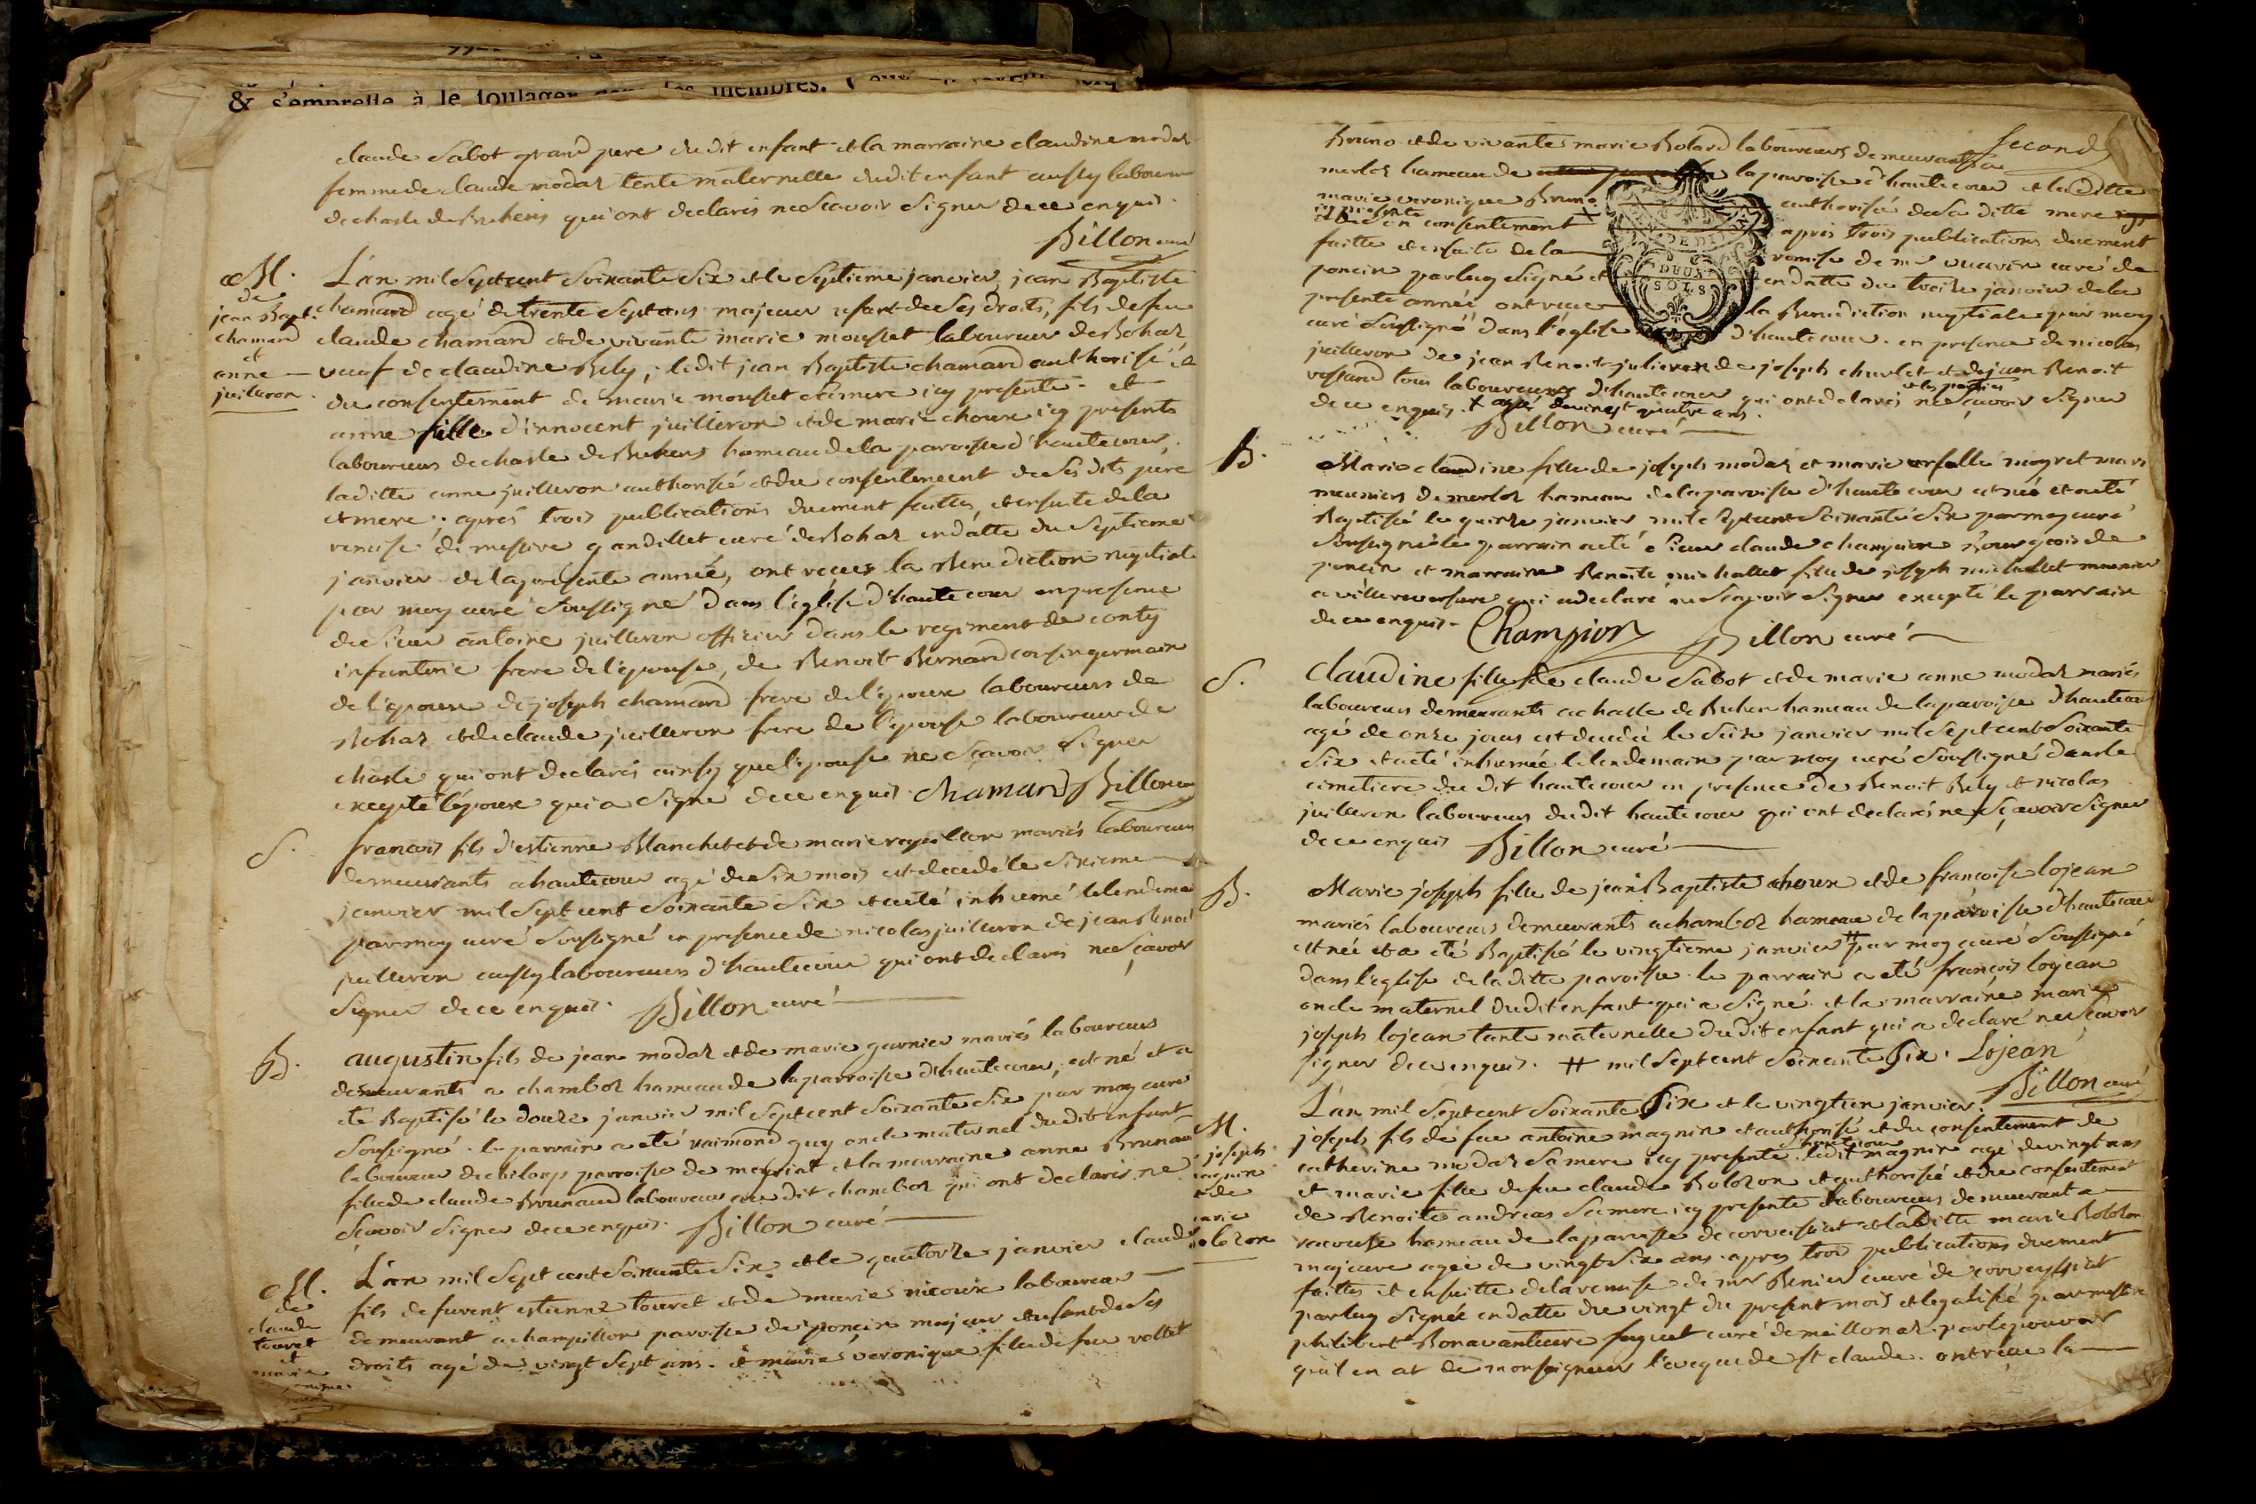 & s'empresse à le soulager les membres.
claude Sabot grand pere du dit enfant et la marraine claudine modas
femme de claude modas tente maternelle dudit enfant aussy laboureur
de chasle de Buhens qui ont declarés ne scavoir signer de ce enquis.
Billon curé
M.
de
jean Bapt.
chamard
et
anne
juilleron.
L'an mil sept cent soixante six et le septieme janvier, jean Baptiste
chamard agé de trente sept ans majeur usant de ses droits, fils de feu
claude chamard et de vivante marie mousset laboureur de Bohas
veuf de claudine Bely, ledit jean Baptiste chamard authorisé et
du consentement de marie mousset sa mere icy presente. et
anne fille d'innocent juilleron et de marie choux icy presents
laboureurs de chasle de Buhens hameau de la paroisse d'hautecour.
laditte anne juilleron authorisé et du consentement de ses dits père
et mere; aprés trois publications duement faittes, et ensuite de la
remise de messire gandillet curé de Bohas en datte du septieme
janvier de la presente année, ont reçus la Benediction nuptiale
par moy curé soussigné dans l'église d'hautecour en presence
de sieur antoine juilleron officier dans le regiment de conty
infanterie frere de l'epouse, de Benoit Bernard cousin germain
de l'epoux de joseph chamard frere de l'epoux laboureurs de
Bohas et de claude juilleron frere de l'epouse laboureur de
chasle qui ont declarés ainsy que l'epouse ne scavoir signer
excepté l'époux qui a signé de ce enquis. chamard Billon curé
S.
francois fils d'estienne Blanchet et de marie mariés laboureurs
demeurants a hautecour agé de six mois est decedé le sixieme
janvier mil sept cent soixante six et a eté inhumé le lendemain
par moy curé soussigné en presence de nicolas juilleron de jean Benoit
juilleron aussy laboureurs d'hautecour qui ont declarés ne scavoir
signer de ce enquis. Billon curé
B.
augustin fils de jean modas et de marie garnier mariés laboureurs
demeurants a chambos hameau de la parroisse d'hautecour, est né et a
eté Baptisé le douze janvier mil sept cent soixante six par moy curé
soussigné. le parrain a eté raimond guy oncle maternel dudit enfant
laboureur de paroisse de meyriat et la marraine anne Brunaud
fille de claude Brunaud laboureur au dit chambos qui ont declarés ne
scavoir signer de ce enquis. Billon curé
M.
de
claude
touret
et
marie
L'an mil sept cent soixante six et le quatorze janvier claude
fils de furent estienne touret et de marie nicoux laboureur
demeurant a champillon paroisse de poncin majeur et usant de ses
droits agé de vingt sept ans. et marie veronique fille de feu
second
Bruno et de vivante marie Bolard laboureurs demeurants a
merlos hameau de la paroisse d'hautecour et laditte
marie veronique Bruno authorisé de sa ditte mere
et de son consentement apres trois publications duement
faittes et ensuite de la remise de mr curé de
poncin par luy signé et en datte du treize janvier de la
presente année ont recue la Benediction nuptiale par moy
curé soussigné dans l'église d'hautecour. en presence de nicolas
juilleron de jean Benoit juilleron de joseph et de jean Benoit
tous laboureurs d'hautecour qui ont declarés ne scavoir signer
de ce enquis. + agée de vingt quatre ans.
Billon curé
DEDIT
DEUS
SOLS
B.
Marie claudine fille de joseph modas et marie mariés
meuniers de merlos hameau de la paroisse d'hautecour est née et a eté
Baptisé le quinze janvier mil sept cent soixante six par moy curé
soussigné le parrain a eté sieur claude champion Bourgeois de
poncin et marraine Benoite michallet fille de joseph michallet meunier
a villereversure qui a declaré ne scavoir signer excepté le parrain
de ce enquis. Champion Billon curé
S.
Claudine fille de claude Sabot et de marie anne modas mariés
laboureurs demeurants a chasle de Buhens hameau de la paroisse d'hautecour
agé de onze jours est decedé le seize janvier mil sept cent soixante
six et a eté inhumée le lendemain par moy curé soussigné dans le
cimetiere du dit hautecour en presence de Benoit Bely et nicolas
juilleron laboureurs dudit hautecour qui ont declarés ne scavoir signer
de ce enquis Billon curé
B.
Marie joseph fille de jean Baptiste choux et de francoise lojean
mariés laboureurs demeurants a chambos hameau de la paroisse d'hautecour
est née et a eté Baptisé le vingtieme janvier # par moy curé soussigné
dans l'eglise de laditte paroisse. le parrain a eté francois lojean
oncle maternel dudit enfant qui a signé. et la marraine marie
joseph lojean tante maternelle dudit enfant qui a declaré ne scavoir
signer de ce enquis. # mil sept cent soixante six. Lojean
Billon curé
M.
joseph
magnin
et de
marie
Bolozon
L'an mil sept cent soixante six et le vingt un janvier.
joseph fils de feu antoine magnin et authorisé et du consentement de
catherine modas sa mere icy presente. ledit magnin agé de vingt ans
d'hautecour
et marie fille de feu claude Bolozon et authorisé et du consentement
de Benoite andreas sa mere icy presente laboureurs demeurant a
racouse hameau de la paroisse de corveissiat et laditte marie Bolozon
majeure agée de vingt six ans. apres trois publications duement
faittes et ensuitte de la remise de mr Benier curé de corveyssiat
par luy signée en datte du vingt du present mois et legalisé par messire
philibert Bonavanture curé de meillonas. par le pouvoir
qu'il en at de monseigneur l'eveque de st claude. ont reçue la